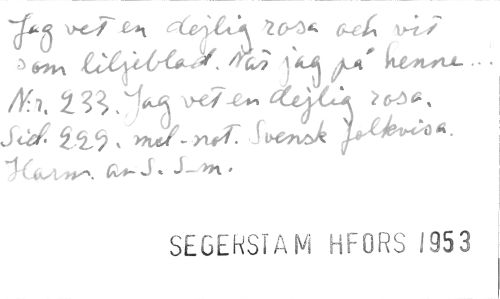 Jag vet en dejlig rosa och vit
som liljeblad. När jag på henne...
N:r. 233. Jag vet en dejlig rosa.
Sid. 229. mel-not. Svensk folkvisa.
Harm. av S. S-m.
SEGERSTAM HFORS 1953